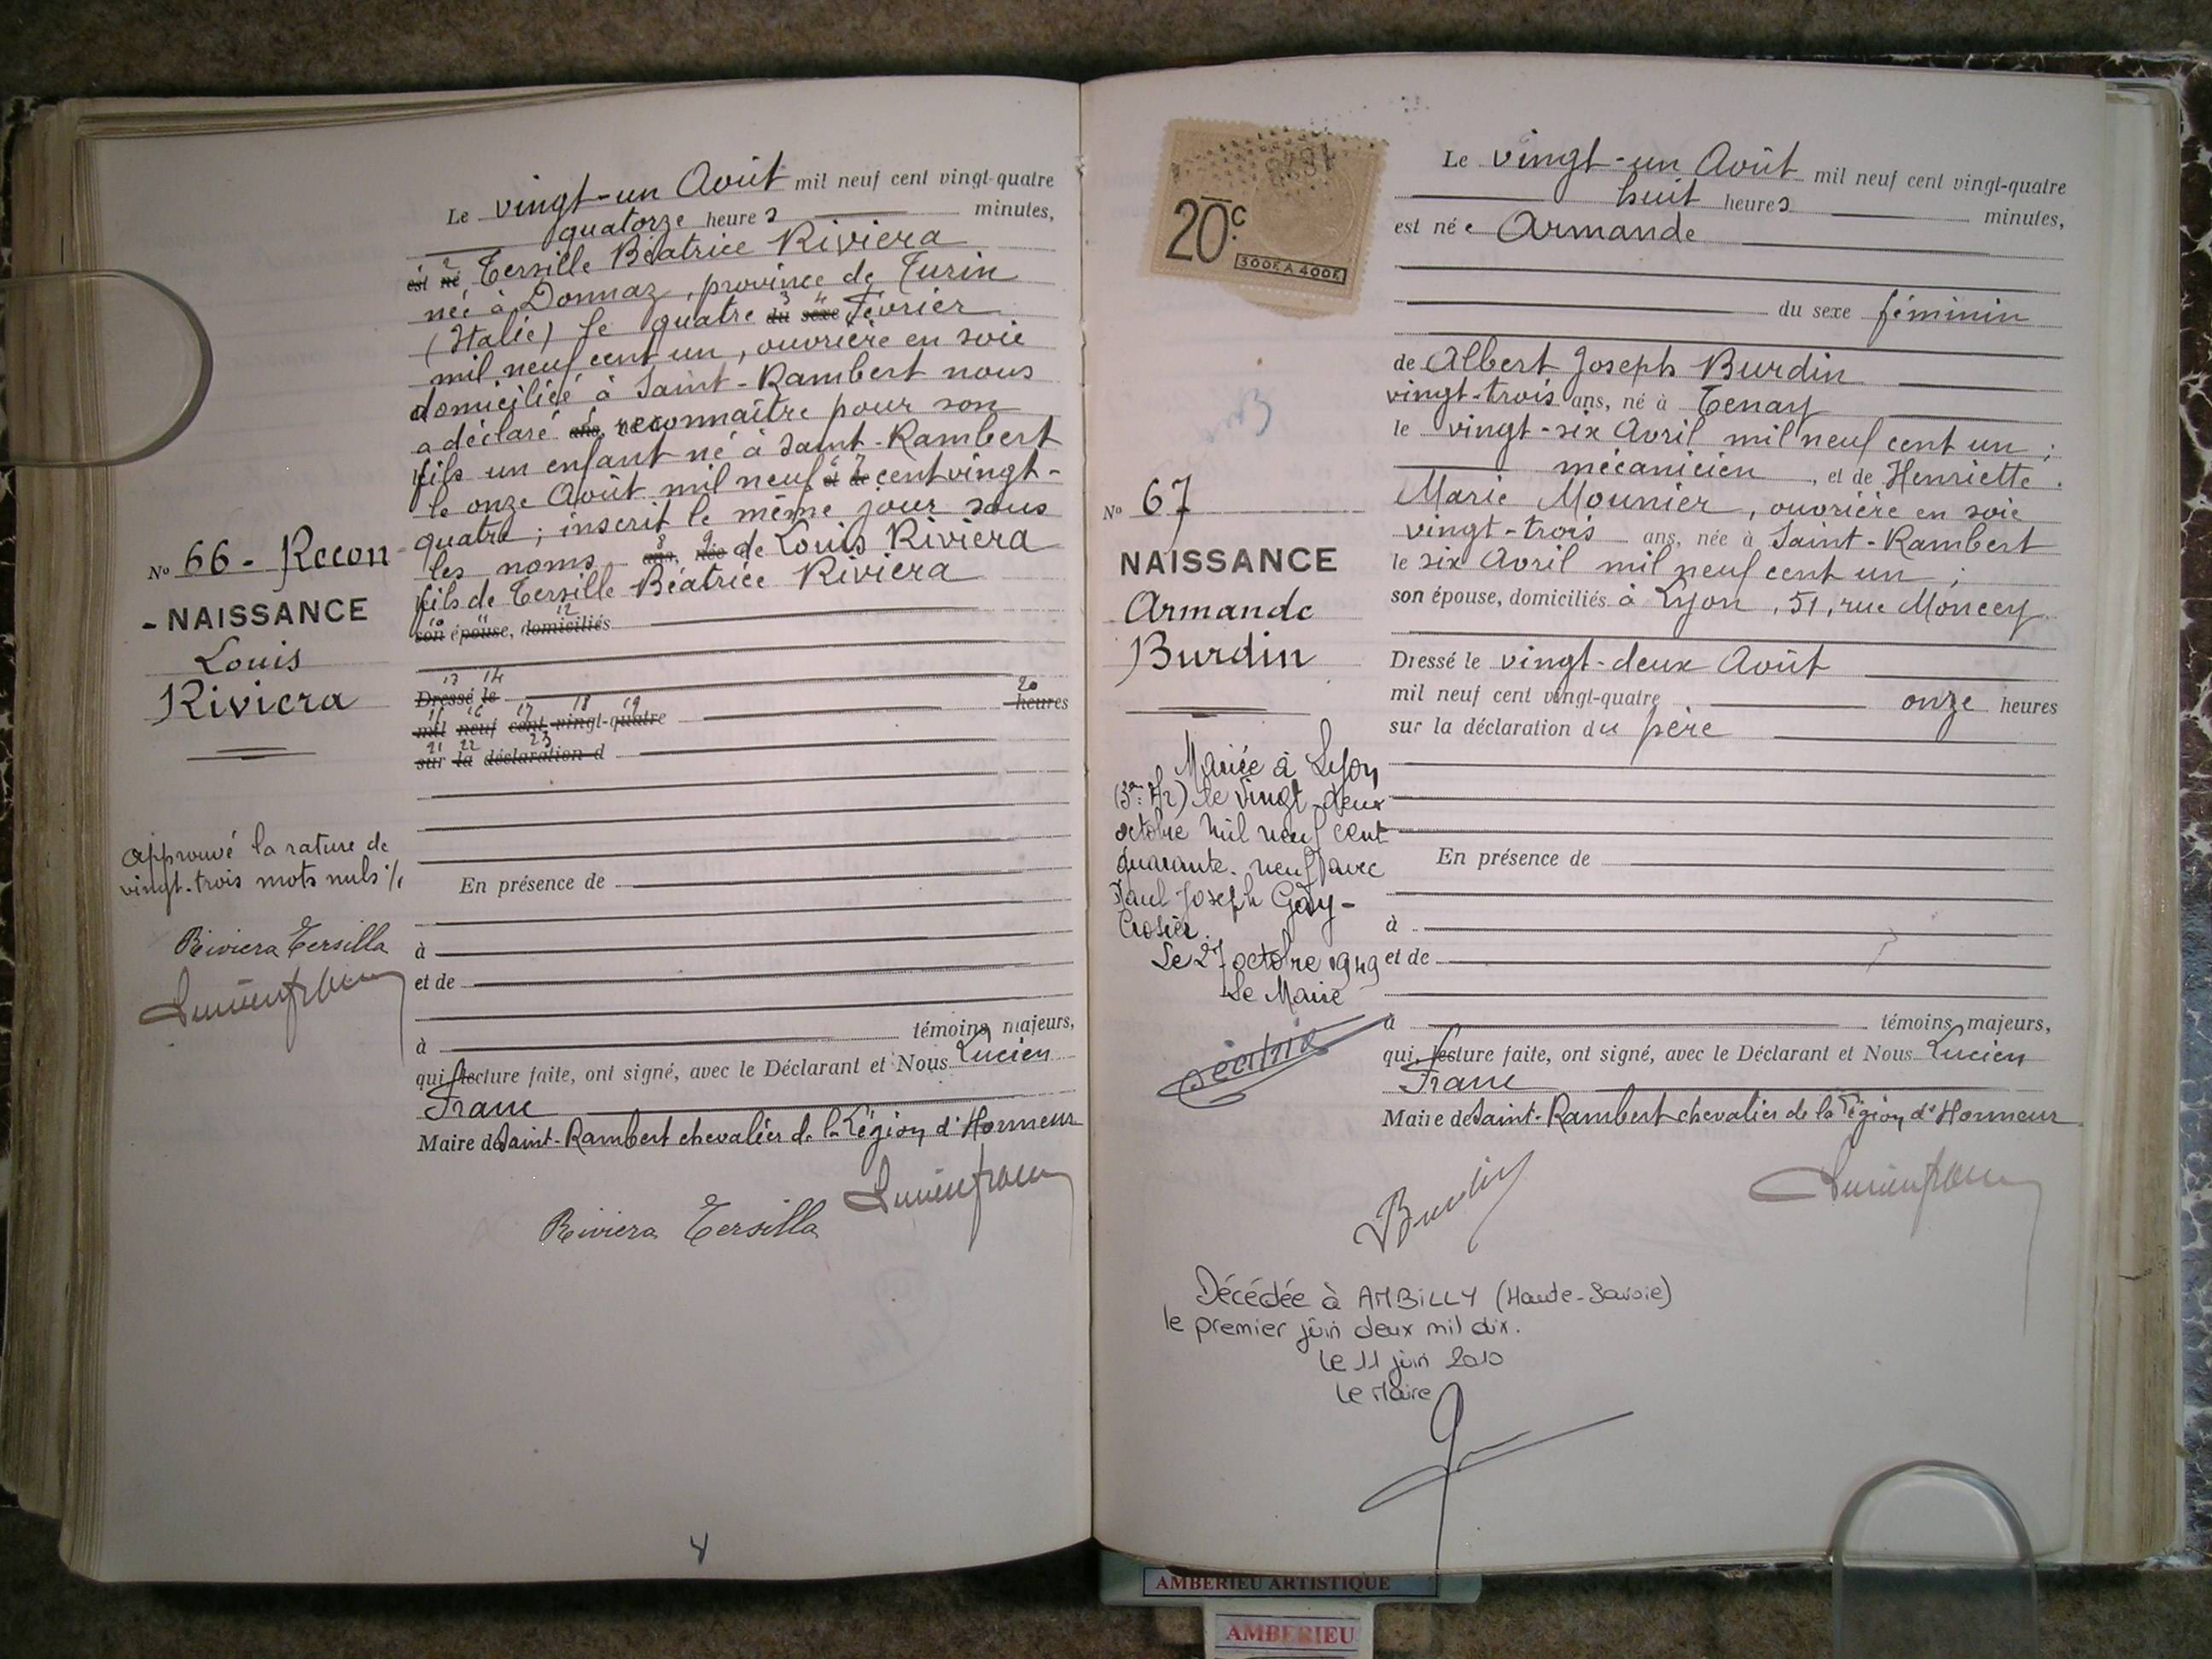 Le vingt-un Août mil neuf cent vingt-quatre
quatorze heures minutes,
est né Tersille Béatrice Riviera
née à Donnaz, province de Turin
(Italie) le quatre du sexe Février
mil neuf cent un, ouvrière en soie
domiciliée à Saint-Rambert nous
a déclaré ans, reconnaître pour son
fils un enfant né à Saint-Rambert
le onze Août mil neuf et de cent vingt-
quatre ; inscrit le même jour sous
les noms ans, née de Louis Riviera
fils de Tersille Béatrice Riviera
son épouse, domiciliés
Dressé le
mil neuf cent vingt-quatre heures
sur la déclaration d
En présence de
à
et de
à témoins majeurs,
qui, lecture faite, ont signé, avec le Déclarant et Nous Lucien
Franc
Maire de Saint-Rambert chevalier de la Légion d'Honneur
Riviera Tersilla
Lucien franc
No 66 - Recon-
- NAISSANCE
Louis
Riviera
Approuvé la rature de
vingt-trois mots nuls ./.
Riviera Tersilla
Lucien franc
20c
300F. A 400F.
Le vingt-un Août mil neuf cent vingt-quatre
huit heures minutes,
est née Armande
du sexe féminin
de Albert Joseph Burdin
vingt-trois ans, né à Tenay
le vingt-six Avril mil neuf cent un ;
mécanicien, et de Henriette
Marie Mounier, ouvrière en soie
vingt-trois ans, née à Saint-Rambert
le six Avril mil neuf cent un ;
son épouse, domiciliés à Lyon, 51, rue Moncey
Dressé le vingt-deux Août
mil neuf cent vingt-quatre onze heures
sur la déclaration du père
En présence de
à
et de
à témoins majeurs,
qui, lecture faite, ont signé, avec le Déclarant et Nous Lucien
Franc
Maire de Saint-Rambert chevalier de la Légion d'Honneur
Burdin
Lucien franc
No 67
NAISSANCE
Armande
Burdin
Mariée à Lyon
(3me Ar) le vingt-deux
octobre mil neuf cent
quarante-neuf avec
Paul Joseph Gay-
Crosier.
Le 27 octobre 1949
Le Maire
Décédée à AMBILLY (Haute-Savoie)
le premier juin deux mil dix.
Le 11 juin 2010
Le Maire
AMBERIEU ARTISTIQUE
AMBERIEU